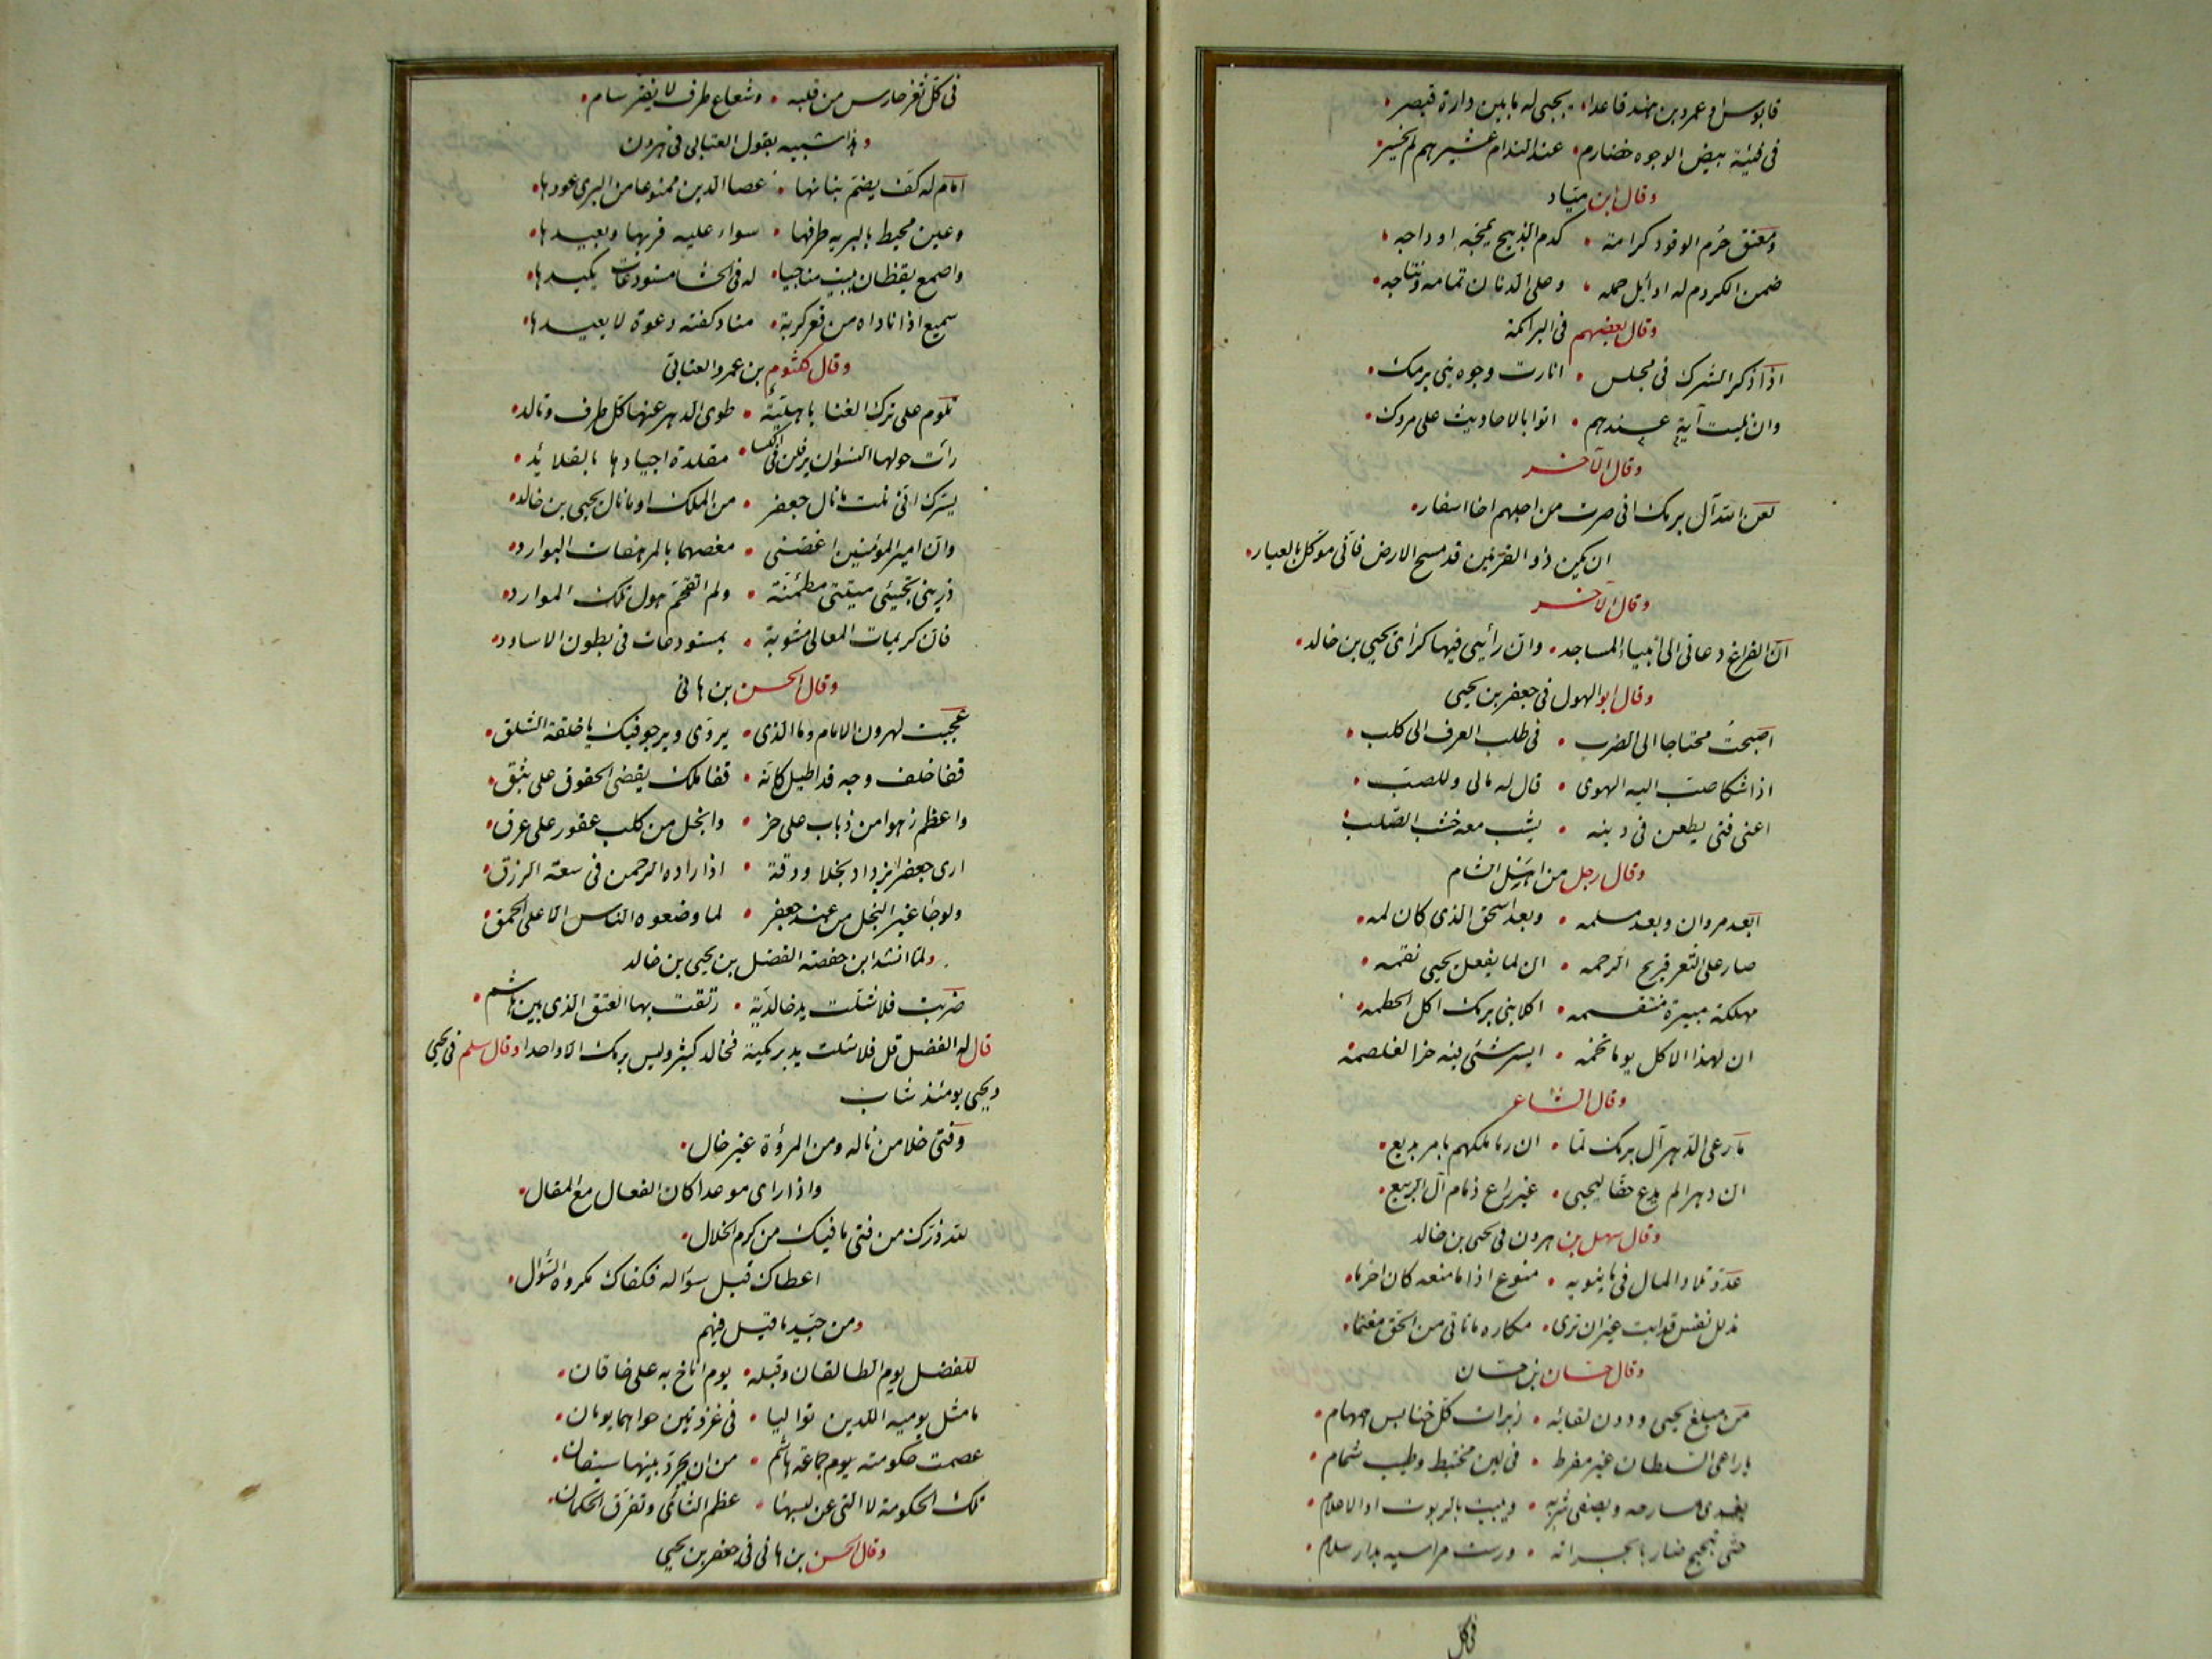 قابوس او عمرو بن هند قاعدا • يجبى له ما بين دارة قيصر •
فى فتية بيض الوجوه خضارم • عند الندام عشيرهم لم يخسر •
وقال ابن مياد
ومعتق حرم الوقود كرامة • كدم الذبيح تمجه اوداجه •
ضمن الكروم له اوائل حمله • وعلى الدنان تمامه ونتاجه •
وقال بعضهم فى البرامكة
اذا ذكر الشرك فى مجلس • انارت وجوه بنى برمك •
وان تليت آية عندهم • اتوا بالاحاديث على مروك •
وقال الآخر
لعن الله آل برمك انى صرت من اجلهم اخا اسفار •
ان يكن ذو القرنين قد مسح الارض فانى موكل بالعيار •
وقال الآخر
ان الفراغ دعانى الى ابتناء المساجد • وان رأيى فيها كرأى يحيى بن خالد •
وقال ابو الهول فى جعفر بن يحيى
اصبحت محتاجا الى الضرب • فى طلب العرف الى كلب •
اذا شكا صب اليه الهوى • قال له مالى وللصب •
اعنى فتى يطعن فى دينه • يشب معه خشب الصلب •
وقال رجل من اهل الشام
ابعد مروان وبعد مسلمه • وبعد اسحق الذى كان لمه •
صار على الثغر فريخ الرخمه • ان لنا بفعل يحيى نقمه •
مهلكة مبيرة منتقمه • اكلا بنى برمك اكل الحطمه •
ان لهذا الاكل يوما تخمه • ايسر شئ فيه حز الغلصمه
وقال الشاعر
ما رعى الدهر آل برمك لما • ان رما ملكهم بامر بديع •
ان دهرا لم يرع حقا ليحيى • غير راع ذمام آل الربيع •
وقال سهل بن هرون فى يحيى بن خالد
عدو تلاد المال فى ما ينوبه • منوع اذا ما منعه كان احزما •
مذلل نفس قد ابت غير ان ترى • مكاره ما تاتى من الحق مغنما •
وقال حسان بن حسان
من مبلغ يحيى ودون لقائه • زبرات كل خنابس همهام •
يا راعى السلطان غير مفرط • فى لين مختبط وطيب شمام •
يغدى مسارحه ويصفى شربه • ويبيت بالربوات والاعلام •
حتى تبحبح ضاربا بجرانه • ورست مراسيه بدار سلام •
فى كل
فى كل ثغر حارس من قلبه • وشعاع طرف لا يفتر سام •
وهذا شبيه بقول العتابى فى هرون
امام له كف يضم بنانها • عصا الدين ممنوعا من البرى عودها •
وعين محيط بالبريه طرفها • سواء عليه قربها وبعيدها •
واصمع يقظان يبيت مناجيا • له فى الحشا مستودعات يكيدها •
سميع اذا ناداه من قعر كربة • مناد كفته دعوة لا يعيدها •
وقال كلثوم بن عمرو العتابى
تلوم على ترك الغنا باهلية • طوى الدهر عنها كل طرف وتالد •
رأت حولها النسوان يرفلن فى الكسا • مقلدة اجيادها بالقلائد •
يسرك انى نلت ما نال جعفر • من الملك او ما نال يحيى بن خالد •
وان امير المؤمنين اغصنى • مغصهما بالمرهفات البوارد •
ذرينى تجيئنى ميتتى مطمئنة • ولم اتقحم هول تلك الموارد •
فان كريمات المعالى مشوبة • بمستودعات فى بطون الاساود •
وقال الحسن بن هانى
عجبت لهرون الامام وما الذى • يروى ويرجو فيك يا خلقة السلق •
قفا خلف وجه قد اطيل كانه • قفا ملك يقضى الحقوق على بثق •
واعظم زهوا من ذباب على خر • وابخل من كلب عقور على عرق •
ارى جعفرا يزداد بخلا ودقة • اذا زاده الرحمن فى سعة الرزق •
ولو جاء غير البخل من عند جعفر • لما وضعوه الناس الا على الحمق •
ولما انشد ابن حفصة الفضل بن يحيى بن خالد
ضربت فلا شلت يد خالدية • رتقت بها الفتق الذى بين هاشم •
قال له الفضل قل فلا شلت يد برمكية فخالد كثير وليس برمك الا واحدا وقال سلم فى يحيى
ويحيى يومئذ شاب
وفتى خلا من ماله ومن المروءة غير خال •
واذا راى موعدا كان الفعال مع المقال •
لله درك من فتى ما فيك من كرم الخلال •
اعطاك قبل سؤاله فكفاك مكروه السؤال •
ومن جيد ما قيل فيهم
للفضل يوم الطالقان وقبله • يوم اناخ به على خاقان •
ما مثل يوميه اللذين تواليا • فى غزوتين حواهما يومان •
عصمت حكومته يوم جماعة هاشم • من ان يجرد بينها سيفان •
تلك الحكومة لا التى عن لبسها • عظم الثأى وتفرق الحكمان •
وقال الحسن بن هانى فى جعفر بن يحيى